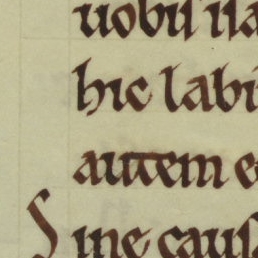 uobis illa
hic labi
autem e
Sine caus